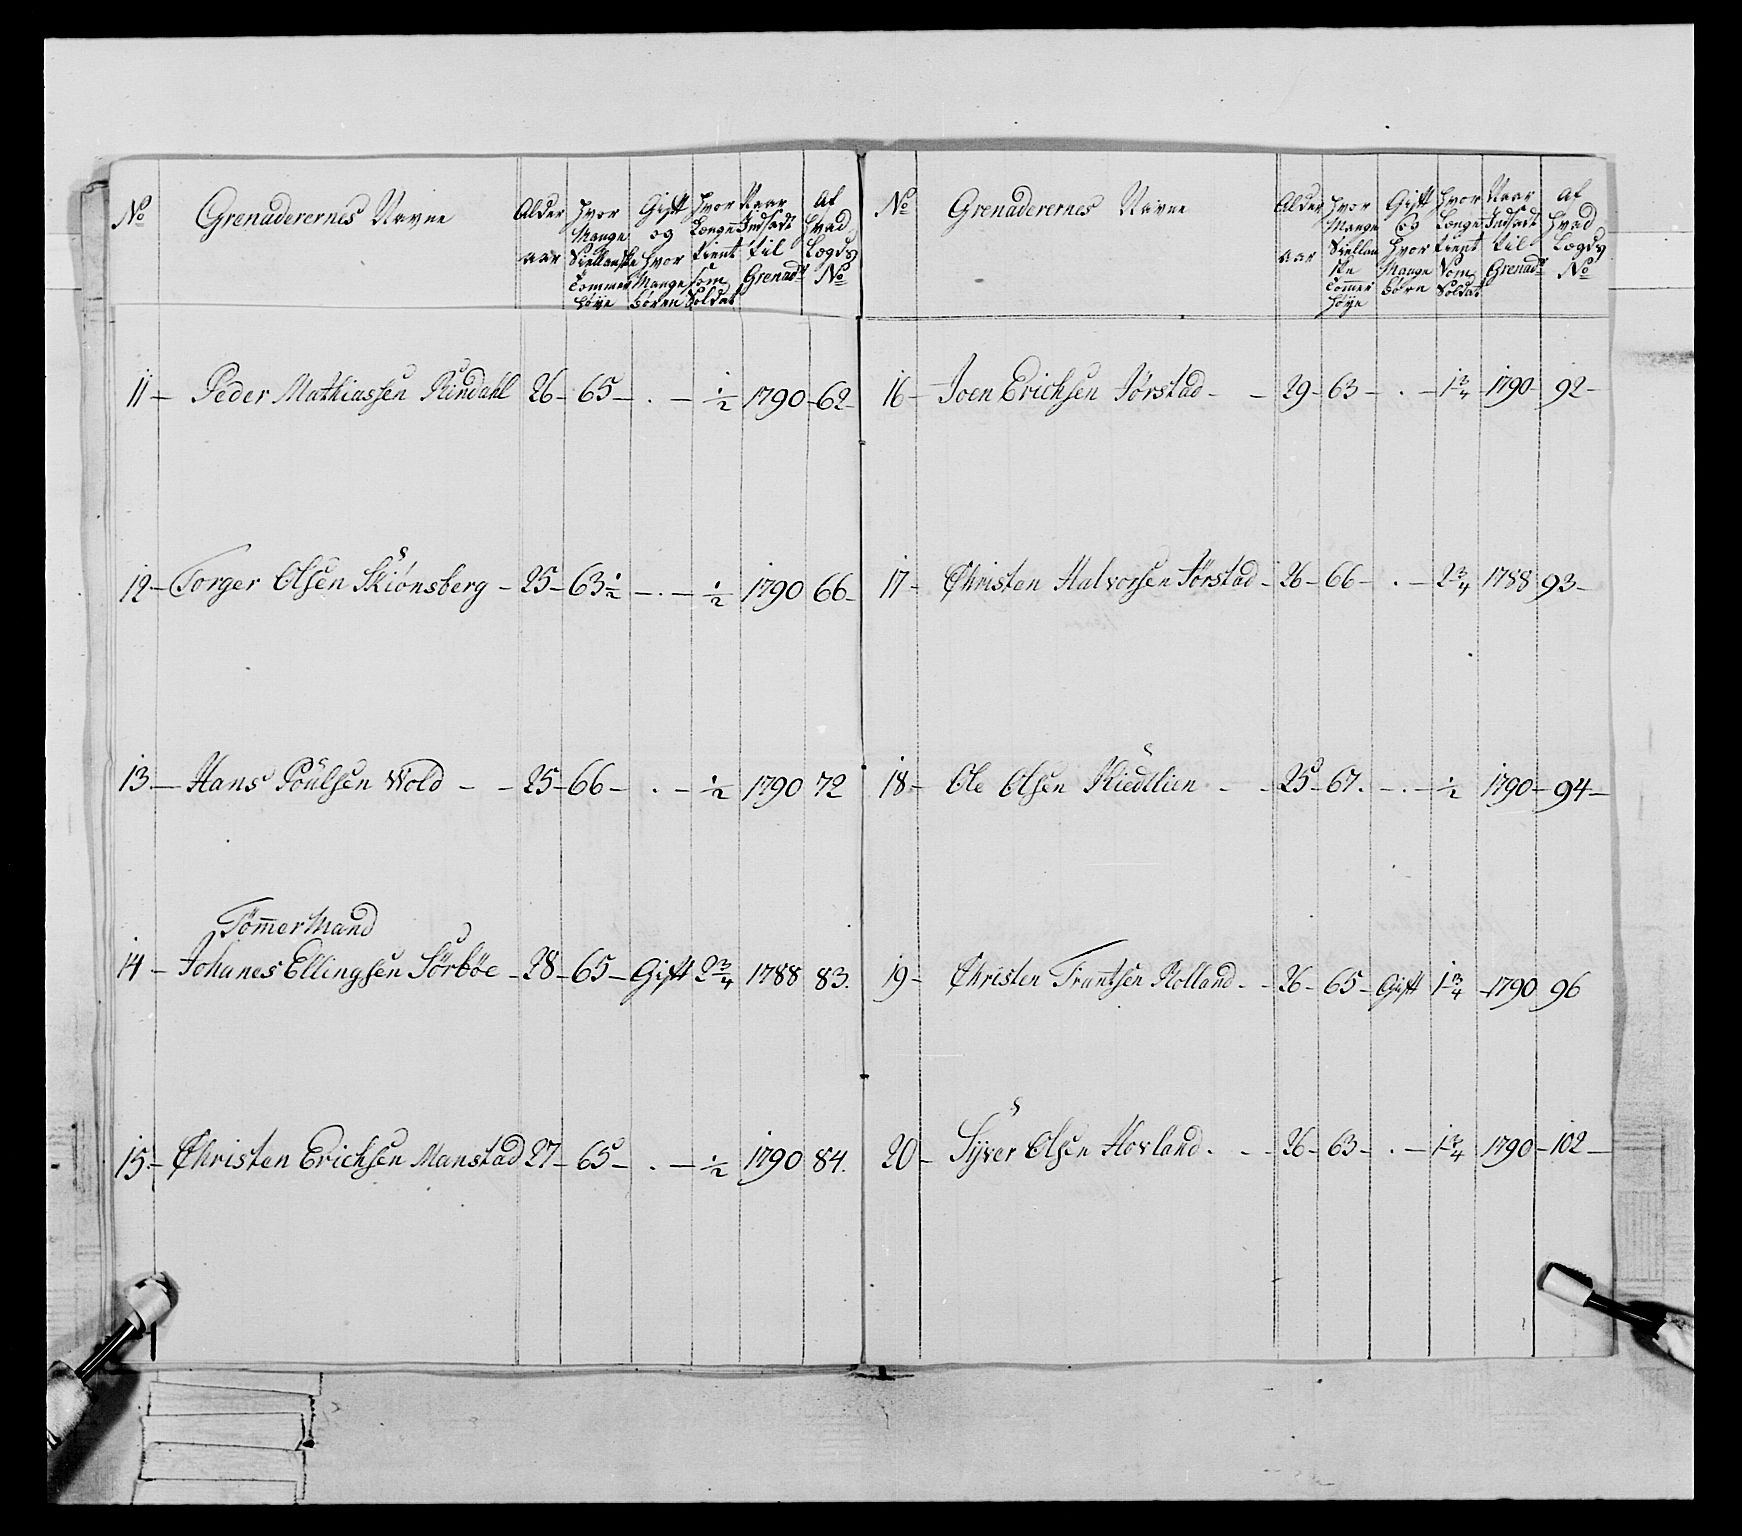 No Grenaderernes Navne Alder aar Hvor Mange Siellanske Tommer Høye Gift og Hvor Mange Børn Hvor Længe tient som Soldat Naar Indsadt til Grenadr Af Hvad Lægds No
11 – Peder Mathiassen Rindahl 26 – 65 – . – 1/2 1790 – 62 –
12 – Torger Olsen Skiönsberg – 25 – 63 1/2 – . – 1/2 1790 66 –
13 – Hans Poulsen Wold – – 25 – 66 – . – 1/2 1790 72
Tömmer Mand
14 – Johanes Ellingsen Sörböe – 28 – 65 – Gift 2 3/4 1788 83.
15 – Christen Erichsen Manstad 27 – 65 – . – 1/2 1790 84.
No Grenaderernes Navne Alder aar Hvor Mange Siellanske Tommer Høye Gift Og Hvor Mange Børn Hvor Længe tient Som Soldat Naar Indsadt til Grenadr Af Hvad Lægds No
16 – Joen Erichsen Jørstad – – 29 – 63 – . – 1 3/4 1790 – 92 –
17 – Christen Halvorsen Jørstad – 26 – 66 – . – 2 3/4 1788 93 –
18 – Ole Olsen Kiedtlien – – 25 – 67. – . – 1/2 1790 – 94 –
19 – Christen Frantsen Rolland – – 26 – 65 – Gift 1 3/4 – 1790 96
20 – Syver Olsen Hovland . – – 26 – 63 – . – 1 3/4 1790 – 102 –